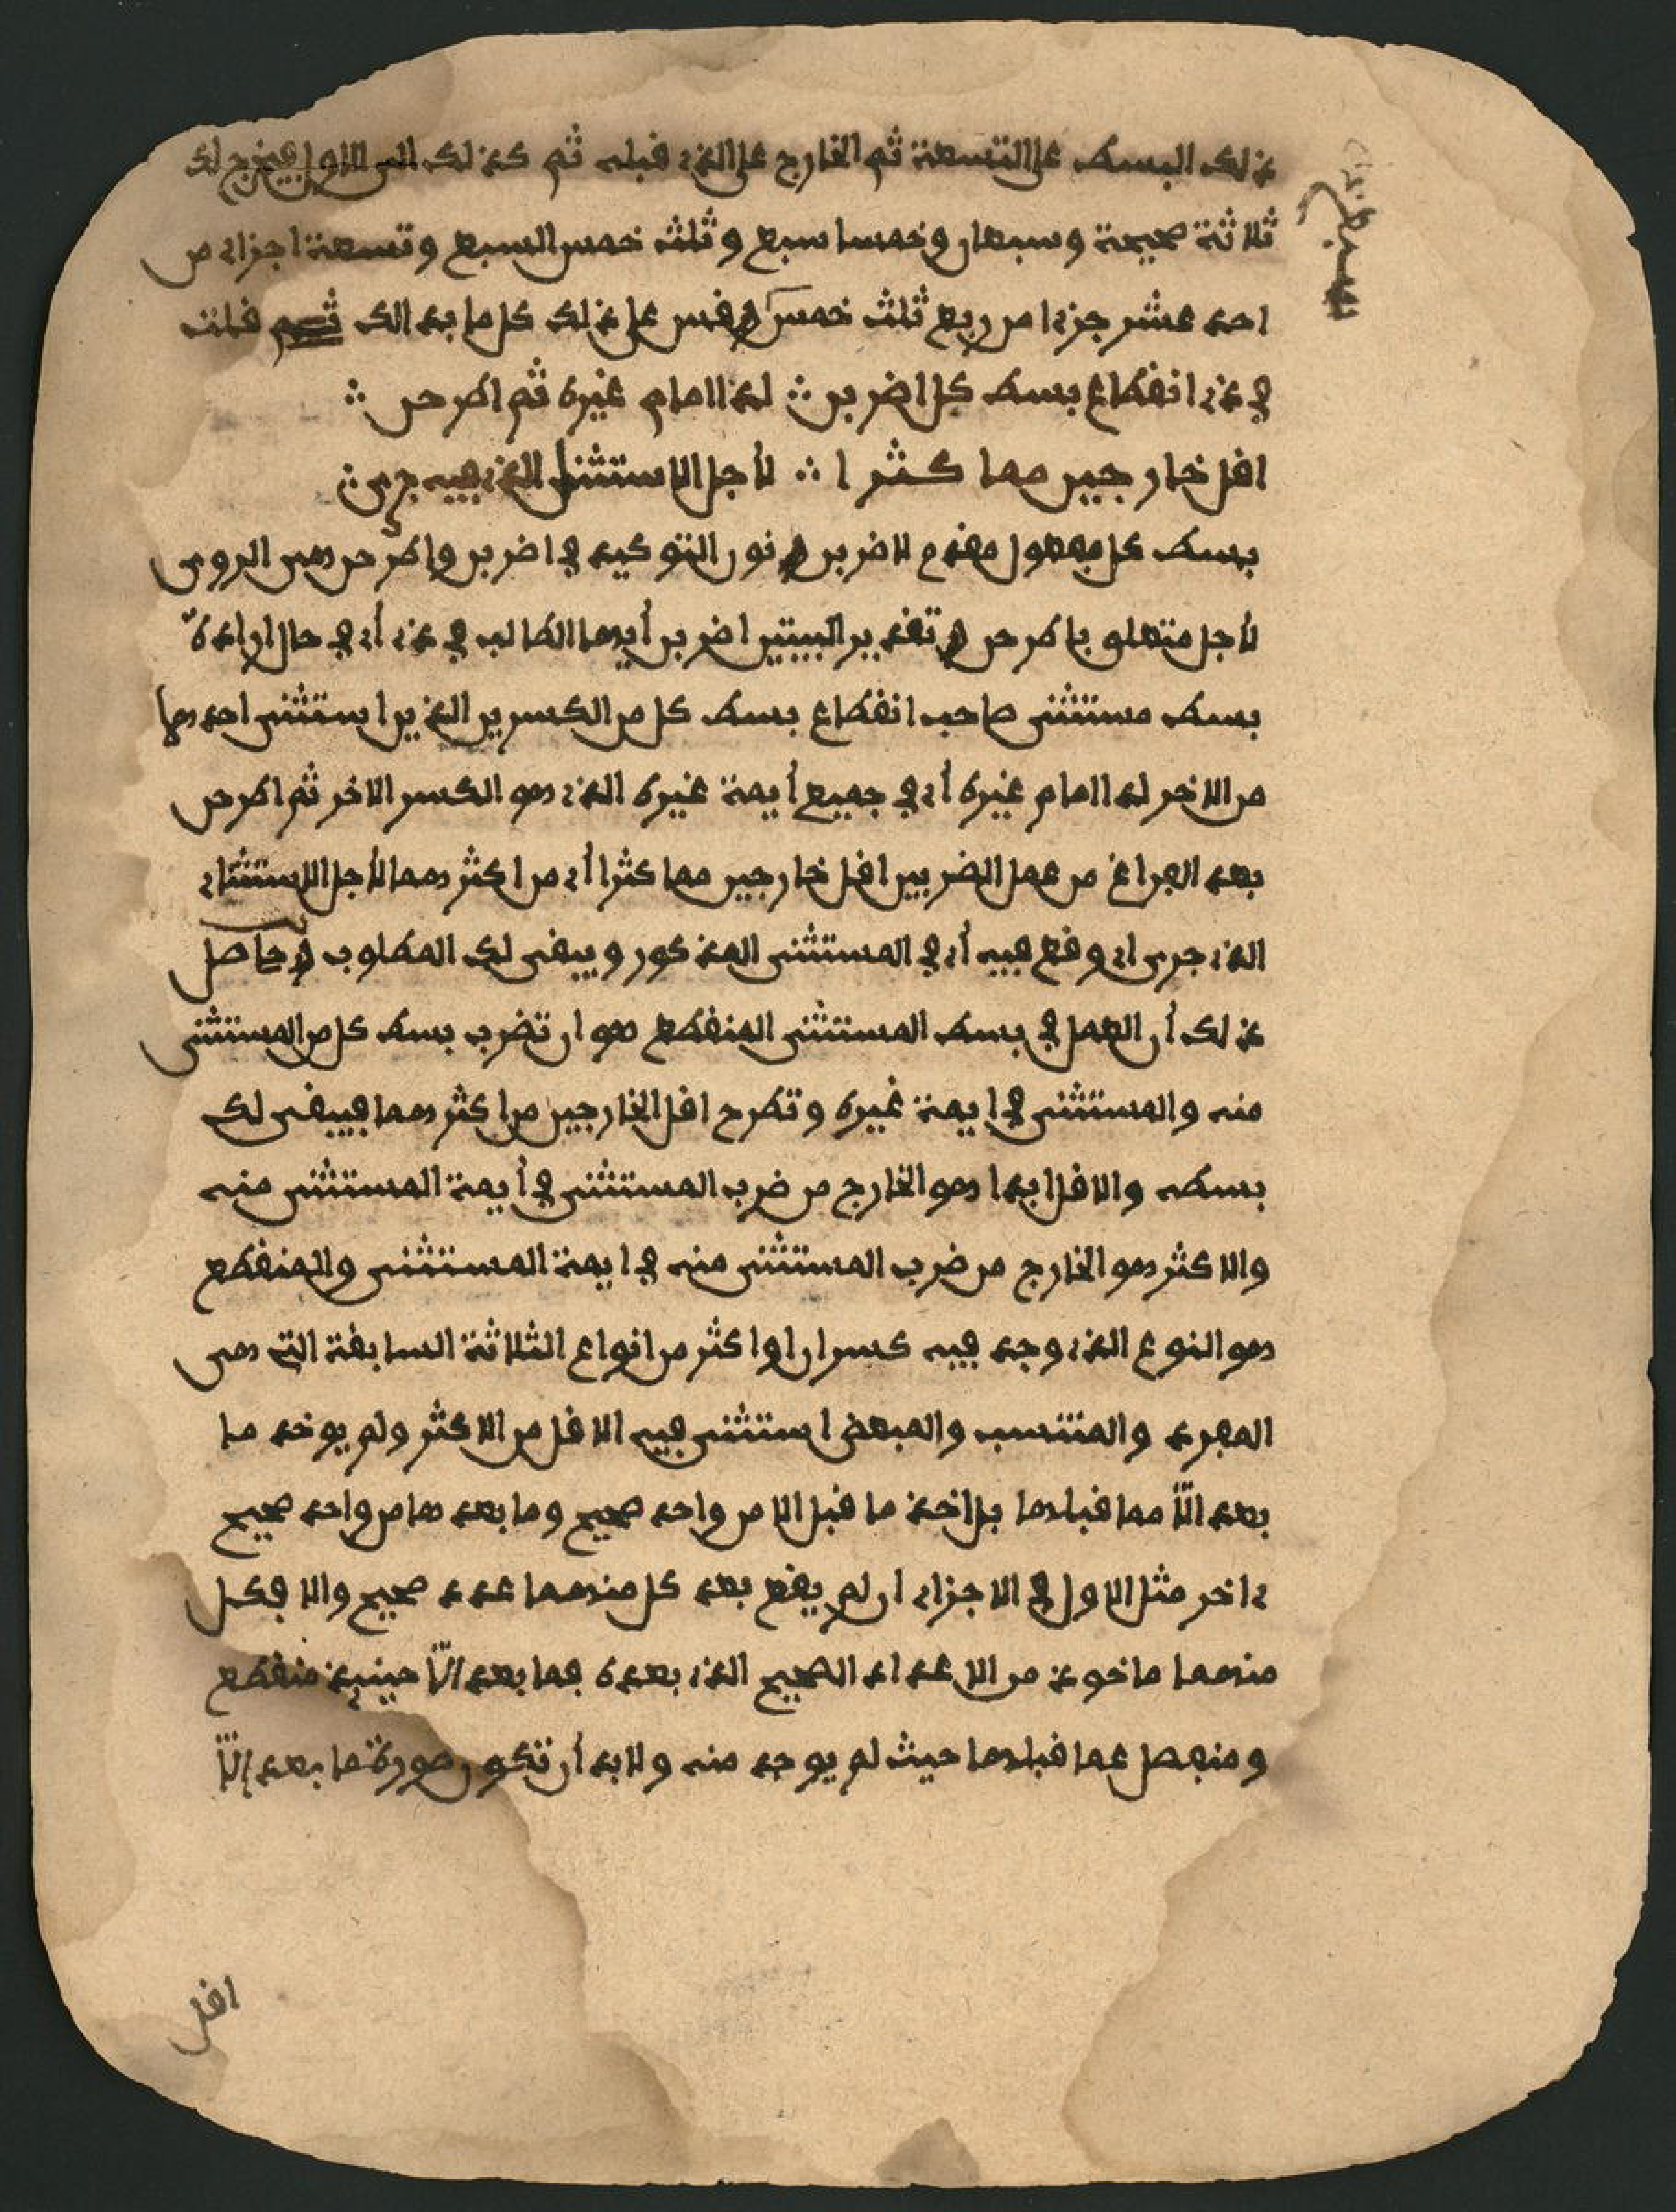 ذلك البسط على التسعة ثم الخارج على الذي قبله ثم كذلك الى الاول فيخرج لك
ثلاثة صحيحة وسبعان وخمسا سبع وثلث خمس السبع وتسعة اجزاء من
احد عشر جزءا من ربع ثلث خمس وقس على ذلك كل ما بدا لك ثم قلت
في ذي انقطاع بسط كل اضربن ∴ لدا امام غيره ثم اطرحن ∴
اقل خارجين مما كثرا ∴ لأجل الاستثنا الذي فيه جرى ∴
بسط كل مفعول مقدم لاضربن ونون التوكيد في اضربن واطرحن وهي الروي
لأجل متعلق باطرحن وتقدير البيتين اضربن أيها الطالب في ذي أي في حال ارادة
بسط مستثنى صاحب انقطاع بسط كل من الكسرين الذين استثنى احدهما
من الاخر لدا امام غيره أي في جميع أيمة غيره الذي هو الكسر الاخر ثم اطرحن
بعد الفراغ من عمل الضربين اقل خارجين مما كثرا أي من اكثرهما لأجل الاستثناء
الذي جرى اي وقع فيه أي في المستثنى المذكور ويبقى لك المطلوب وحاصل
ذلك أن العمل في بسط المستثنى المنقطع هو ان تضرب بسط كل من المستثنى
منه والمستثنى في ايمة غيره وتطرح اقل الخارجين من اكثرهما فيبقى لك
بسطه والاقل ابدا هو الخارج من ضرب المستثنى في أيمة المستثنى منه
والاكثر هو الخارج من ضرب المستثنى منه في ايمة المستثنى والمنقطع
هو النوع الذي وجد فيه كسران او اكثر من انواع الثلاثة السابقة التي هي
المفرد والمنتسب والمبعض استثنى فيه الاقل من الاكثر ولم يوخذ ما
بعد الّا مما قبلها بل اخذ ما قبل الا من واحد صحيح وما بعدها من واحد صحيح
ءاخر مثل الاول في الاجزاء ان لم يقع بعد كل منهما عدد صحيح والا فكل
منهما ماخوذ من الاعداد الصحيح الذي بعده فما بعد الّا حينيذ منقطع
ومنفصل عما قبلها حيث لم يوجد منه ولا بد أن تكون صورة ما بعد إلّا
اقل